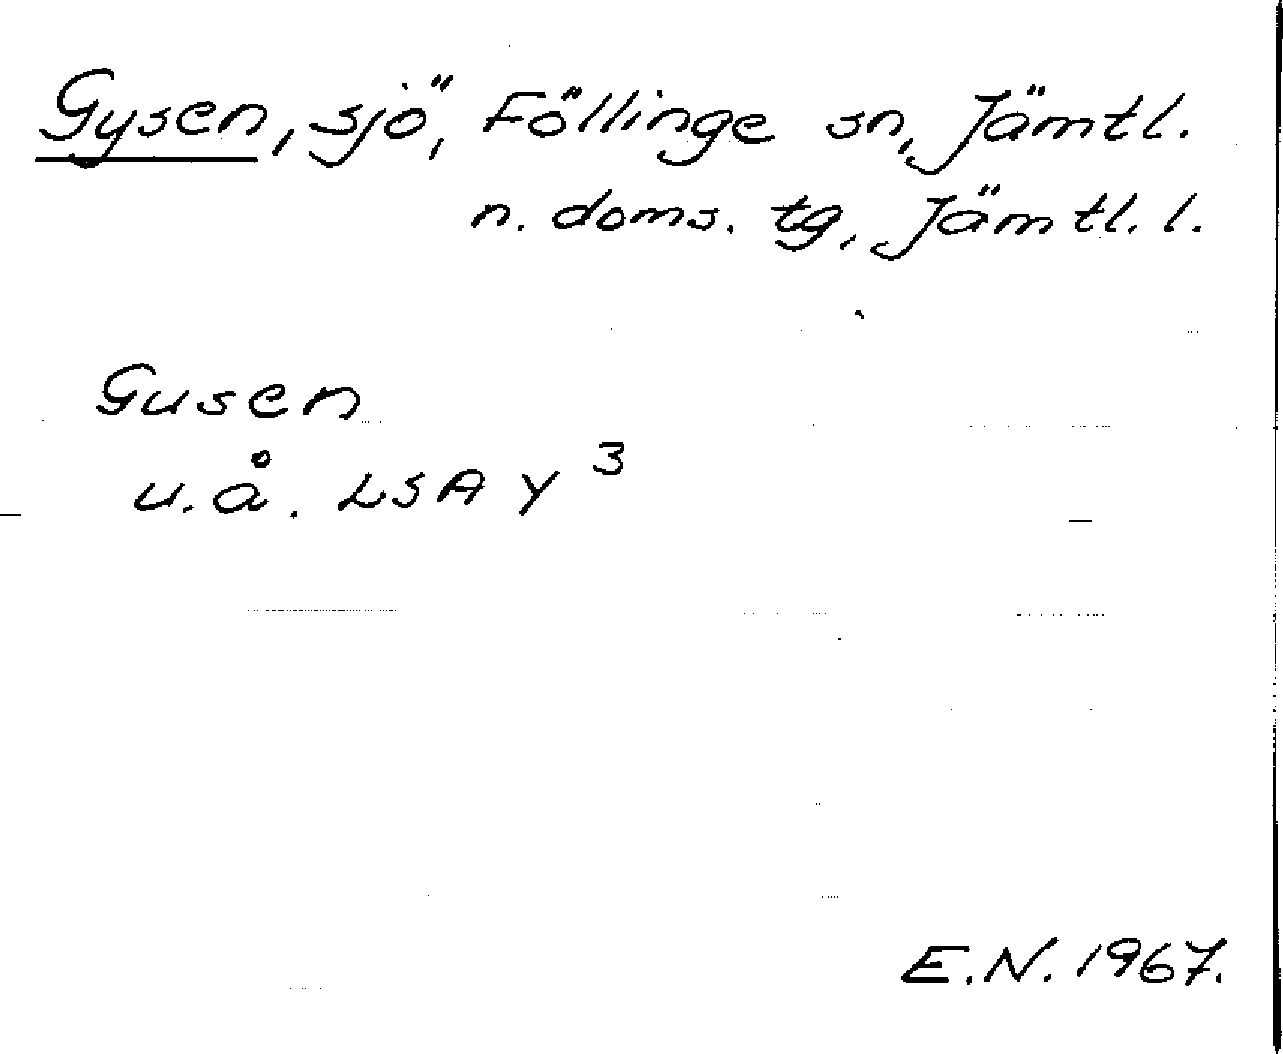 Gysen, sjö, Föllinge sn, Jämtl.
n. doms. tg, Jämtl. l.
Gusen
u.å. LSA Y 3
E.N. 1967.